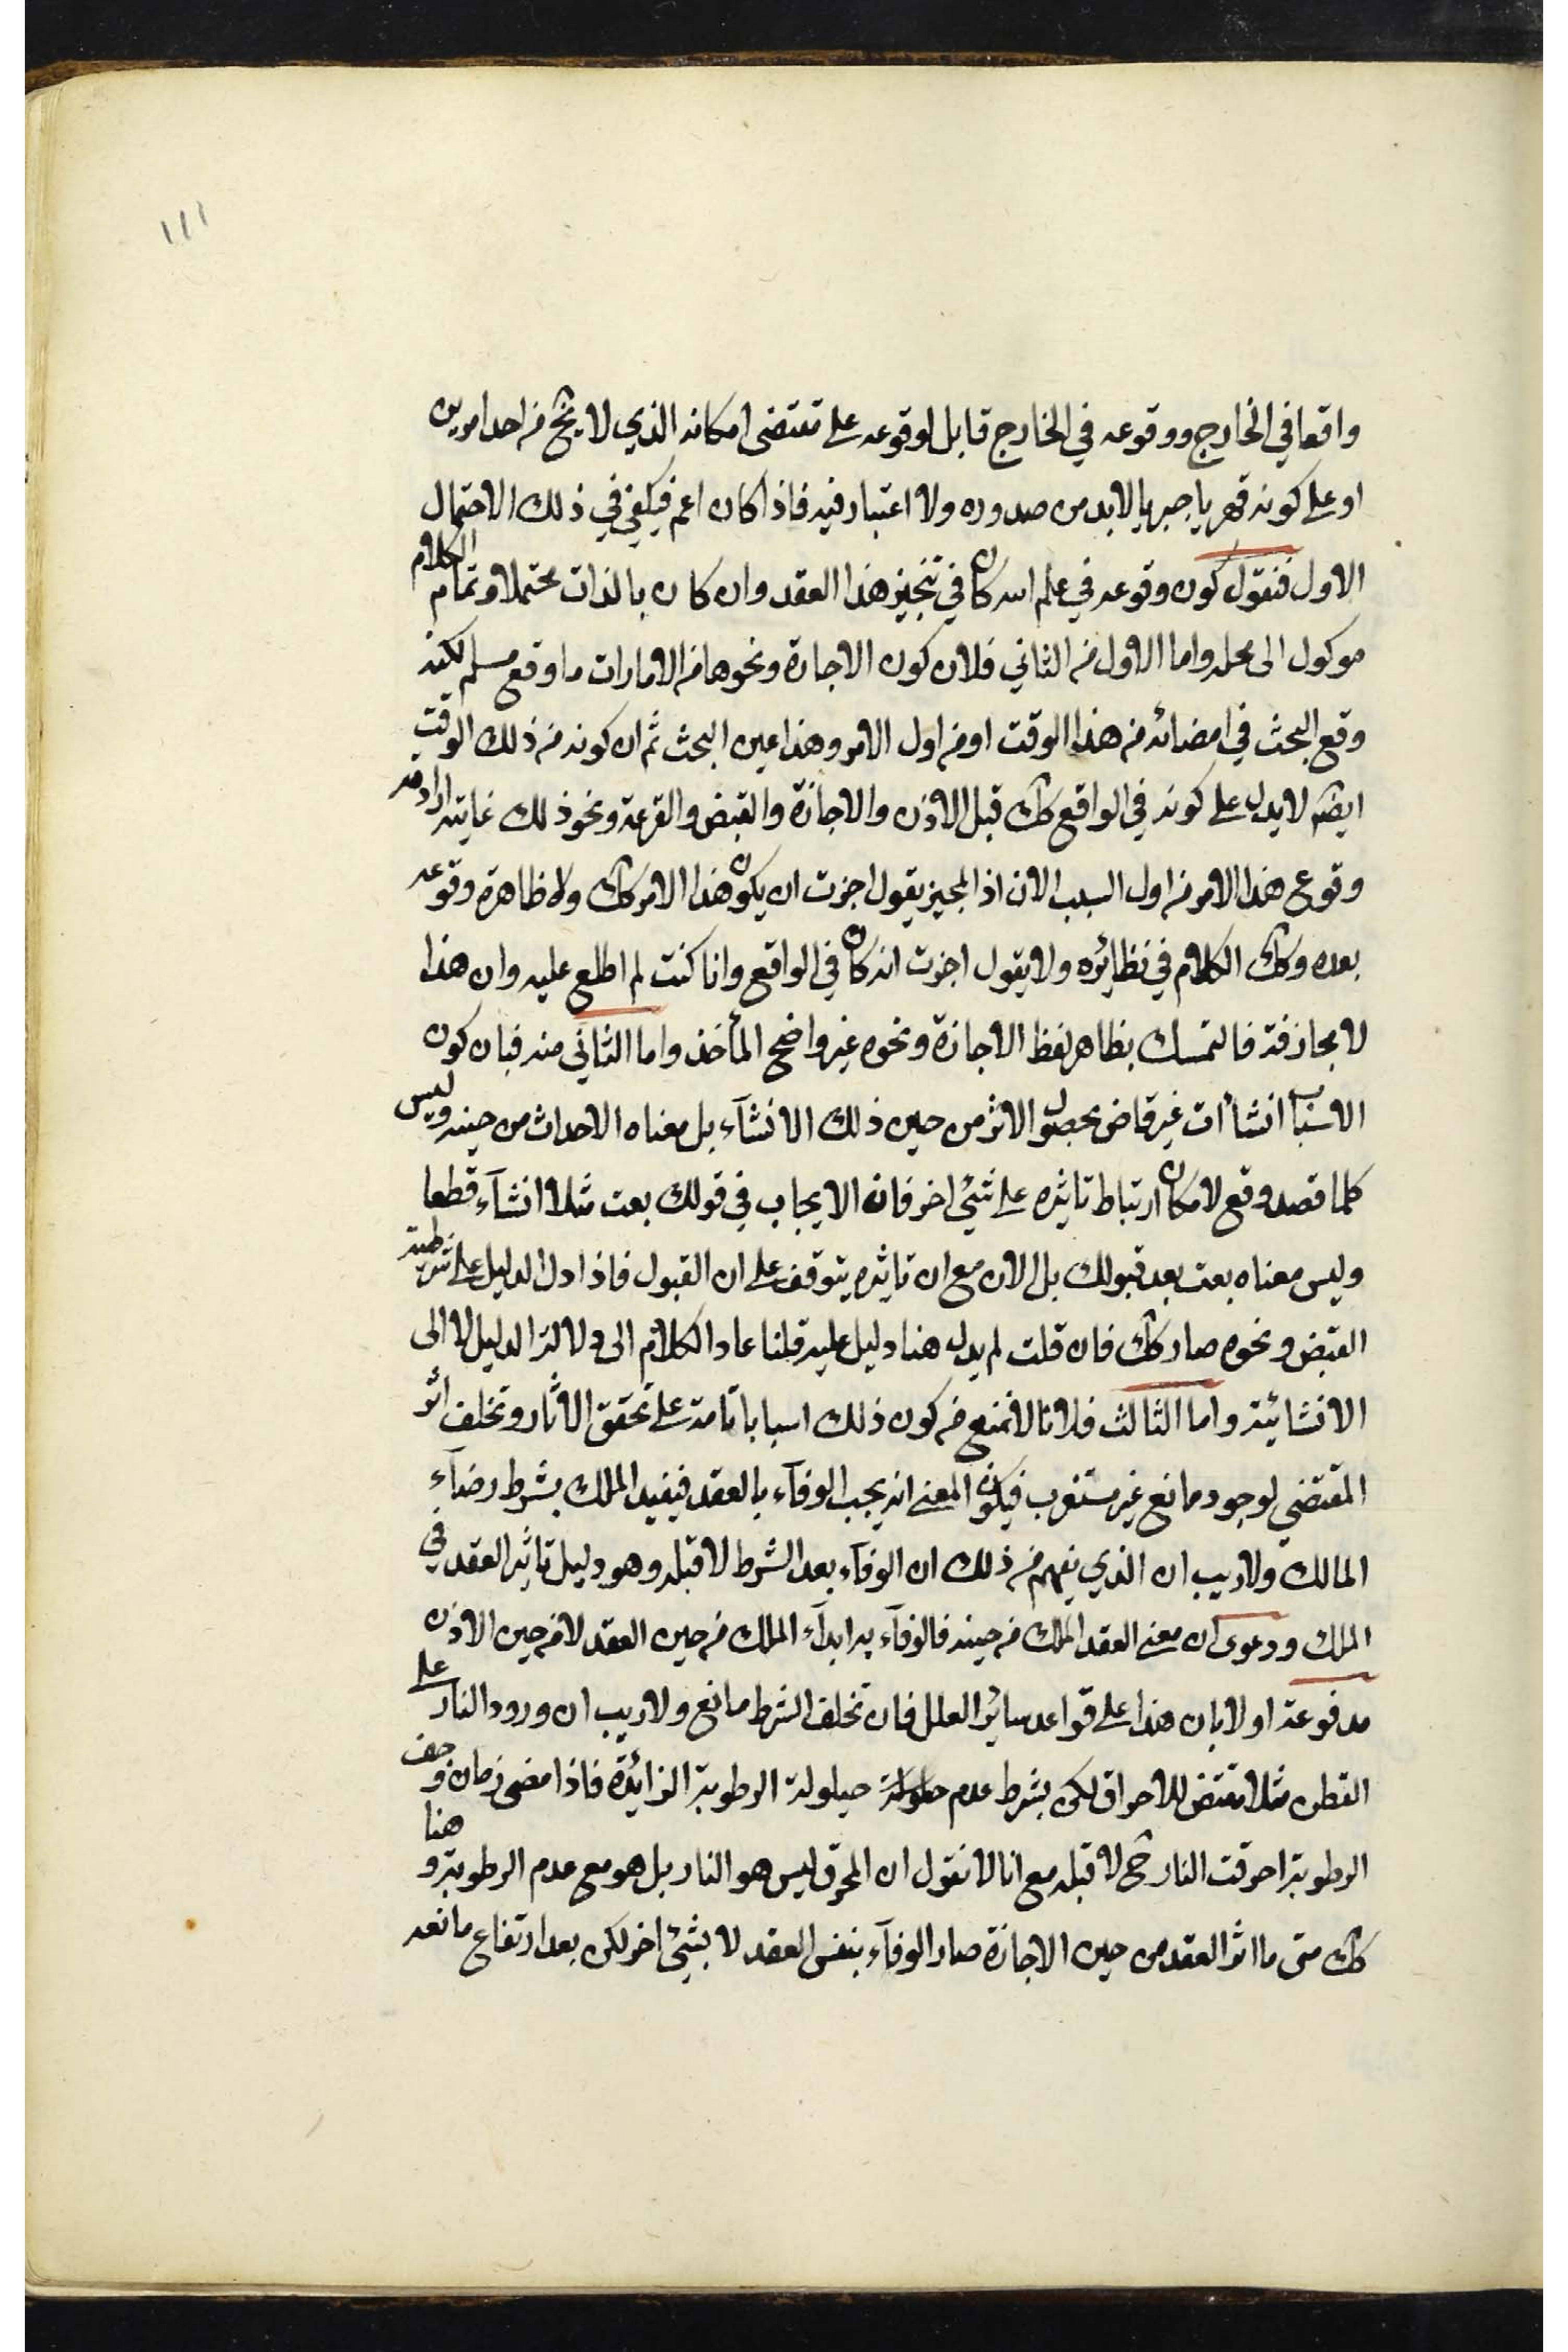 ١١١
واقعا في الخارج ووقوعه في الخارج قابل لوقوعه على مقتضى امكانه الذي لا يخ من احد امرين
او على كونه قهريا جبريا لا بد من صدوره ولا اعتبار فيه فاذا كان اعم فيكفي في ذلك الاحتمال
الاول فنقول كون وقوعه في علم الله كان في تنجيز هذا العقد وان كان بالذات محتملا وتمام الكلام
موكول الى محله واما الاول من الثاني فلان كون الاجازة ونحوها من الامارات ما وقع مسلم لكنه
وقع البحث في امضائه من هذا الوقت او من اول الامر وهذا عين البحث ثم ان كونه من ذلك الوقت
ايضا لا يدل على كونه في الواقع كك قبل الاذن والاجازة والقبض والقرعة ونحو ذلك غايته ارادة
وقوع هذا الامر من اول السبب الان اذ المجيز يقول اجزت ان يكون هذا الامر كك وله ظاهرة وقوعه
بعده وكك الكلام في نظائره ولا يقول اجزت انه كان في الواقع وانا كنت لم اطلع عليه وان هذا
لا مجازفة فالتمسك بظاهر لفظ الاجازة ونحوه غير واضح المأخذ واما الثاني منه فبان كون
الاسباب انشاآت غير قاض بحصول الاثر من حين ذلك الانشآء بل معناه الاحداث من حينه وليس
كلما قصد وقع لامكان ارتباط تاثيره على شيئ اخر فان الايجاب في قولك بعت مثلا انشآء قطعا
وليس معناه بعت بعد قبولك بل الان مع ان تاثيره يتوقف على ان القبول فاذا دل الدليل على شرطية
القبض ونحوه صار كك فان قلت لم يدل هنا دليل عليه قلنا عاد الكلام الى دلالة الدليل لا الى
الانشائية واما الثالث فلانا لا نمنع من كون ذلك اسبابا تامة على تحقق الاثار وتخلف اثر
المقتضي لوجود مانع غير مستغرب فيكون المعنى انه يجب الوفآء بالعقد فيفيد الملك بشرط رضآء
المالك ولا ريب ان الذي يفهم من ذلك ان الوفآء بعد الشرط لا قبله وهو دليل تاثير العقد في
الملك ودعوى ان معنى العقد الملك من حينه فالوفآء به ابدآء الملك من حين العقد لا من حين الاذن
مدفوعة اولا بان هذا على قواعد سائر العلل فان تخلف الشرط مانع ولا ريب ان ورود النار على
القطن مثلا مقتض للاحراق لكن بشرط عدم حيلولة الرطوبة الزائدة فاذا مضى زمان وجف
الرطوبة احرقت النار ح لا قبله مع انا لا نقول ان المحرق ليس هو النار بل هو مع عدم الرطوبة وهنا
كك متى ما اثر العقد من حين الاجازة صار الوفآء بنفس العقد لا بشيئ اخر لكن بعد ارتفاع مانعه